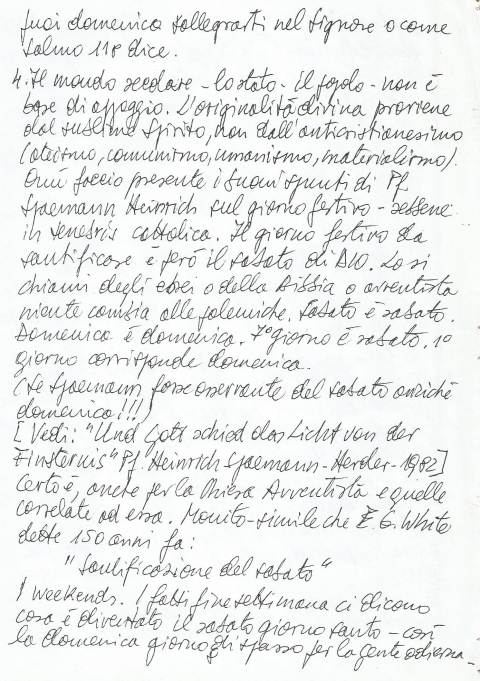 fuoi domenica rallegrarti nel Signore o come
salmo 118 dice.
4. Il mondo secolare - lo stato - il popolo - non è
base di appoggio. L'originalità divina proviene
dal sublime Spirito, non dall'anticristianesimo
(ateismo, comunismo, umanismo, materialismo).
Qui faccio presente i buoni spunti di Pf
Spaemann Heinrich sul giorno festivo - sebbene
in tenebris cattolica. Il giorno festivo da
santificare è però il sabato di DIO. Lo si
chiami degli ebrei o della Bibbia o avventista
niente cambia alle polemiche. Sabato è sabato.
Domenica è domenica. 7° giorno è sabato. 1°
giorno corrisponde domenica.
(Se Spaemann fosse osservante del sabato anzichè
domenica!!!)
[Vedi: "Und Gott schied das Licht von der
Finsternis" Pf. Heinrich Spaemann - Herder - 1982]
Certo è, anche per la Chiesa Avventista e quelle
correlate ad essa. Monito - simile che E. G. White
dette 150 anni fa:
"Santificazione del sabato"
I weekends. I fatti fine settimana ci dicono
cosa è diventato il sabato giorno santo - così
la domenica giorno di spasso per la gente odierna -